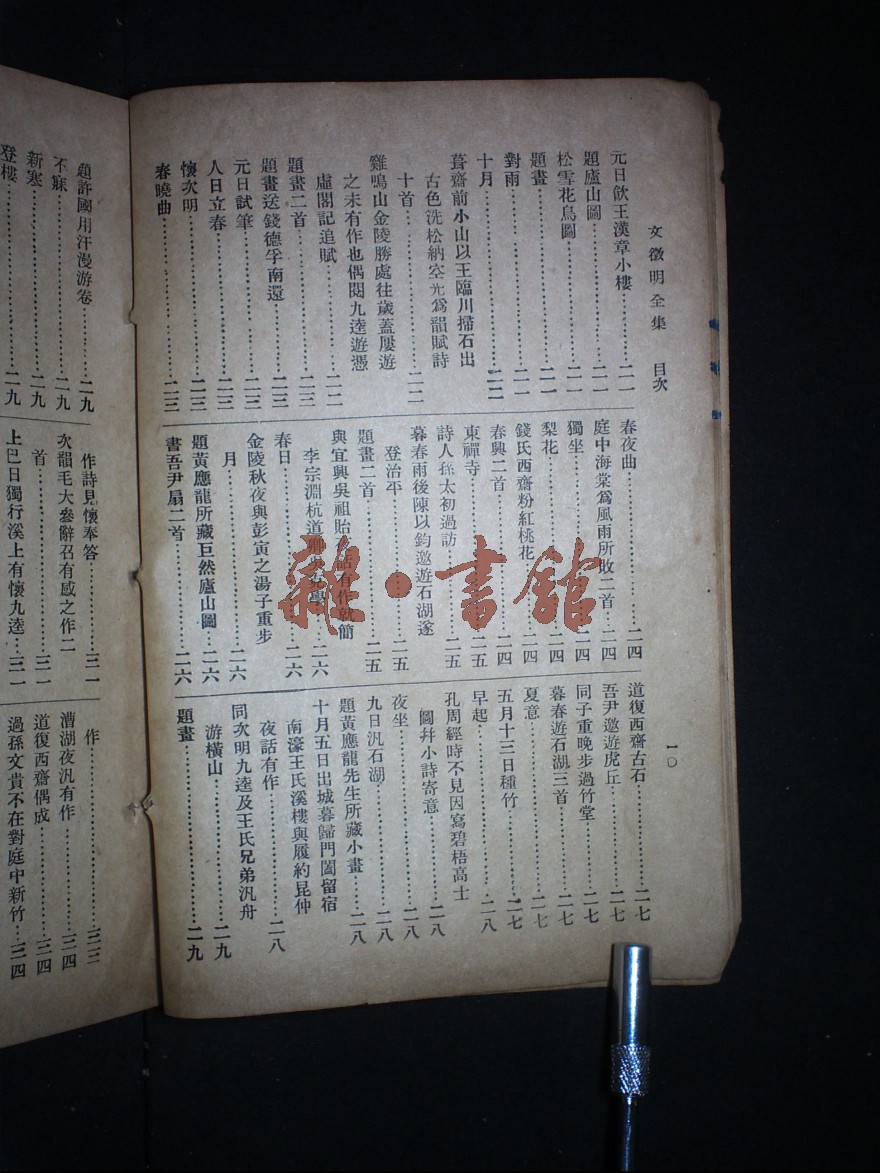 文徵明全集 目次
一〇
元日飲王漢章小樓…二一
題廬山圖…二一
松雪花鳥圖…二一
題畫…二一
對雨…二一
十月…二二
葺齋前小山以王臨川掃石出
古色洗松納空光爲韻賦詩
十首…二二
雞鳴山金陵勝處往歲蓋屢遊
之未有作也偶閱九逵遊憑
虛閣記追賦…二二
題畫二首…二三
題畫送錢德孚南還…二三
元日試筆…二三
人日立春…二三
懷次明…二三
春曉曲…二三
春夜曲…二四
庭中海棠爲風雨所敗二首…二四
獨坐…二四
梨花…二四
錢氏西齋粉紅桃花…二四
春興二首…二四
東禪寺…二五
詩人孫太初過訪…二五
暮春雨後陳以鈞邀遊石湖遂
登治平…二五
題畫二首…二五
與宜興吳祖貽夜話有作就簡
李宗淵杭道卿吳克學…二六
春日…二六
金陵秋夜與彭寅之湯子重步
月…二六
題黃應龍所藏巨然廬山圖…二六
書吾尹扇二首…二六
道復西齋古石…二七
吾尹邀遊虎丘…二七
同子重晚步過竹堂…二七
暮春遊石湖三首…二七
夏意…二七
五月十三日種竹…二七
早起…二八
孔周經時不見因寫碧梧高士
圖幷小詩寄意…二八
夜坐…二八
九日汎石湖…二八
題黃應龍先生所藏小畫…二八
十月五日出城暮歸門闔留宿
南濠王氏溪樓與履約昆仲
夜話有作…二八
同次明九逵及王氏兄弟汎舟
游橫山…二九
題畫…二九
題許國用汗漫游卷…二九
不寐…二九
新寒…二九
登樓…二九
作詩見懷奉答…三一
次韻毛大參辭召有感之作二
首…三一
上巳日獨行溪上有懷九逵…三一
作…三三
漕湖夜汎有作…三四
道復西齋偶成…三四
過孫文貴不在對庭中新竹…三四
雜·書館